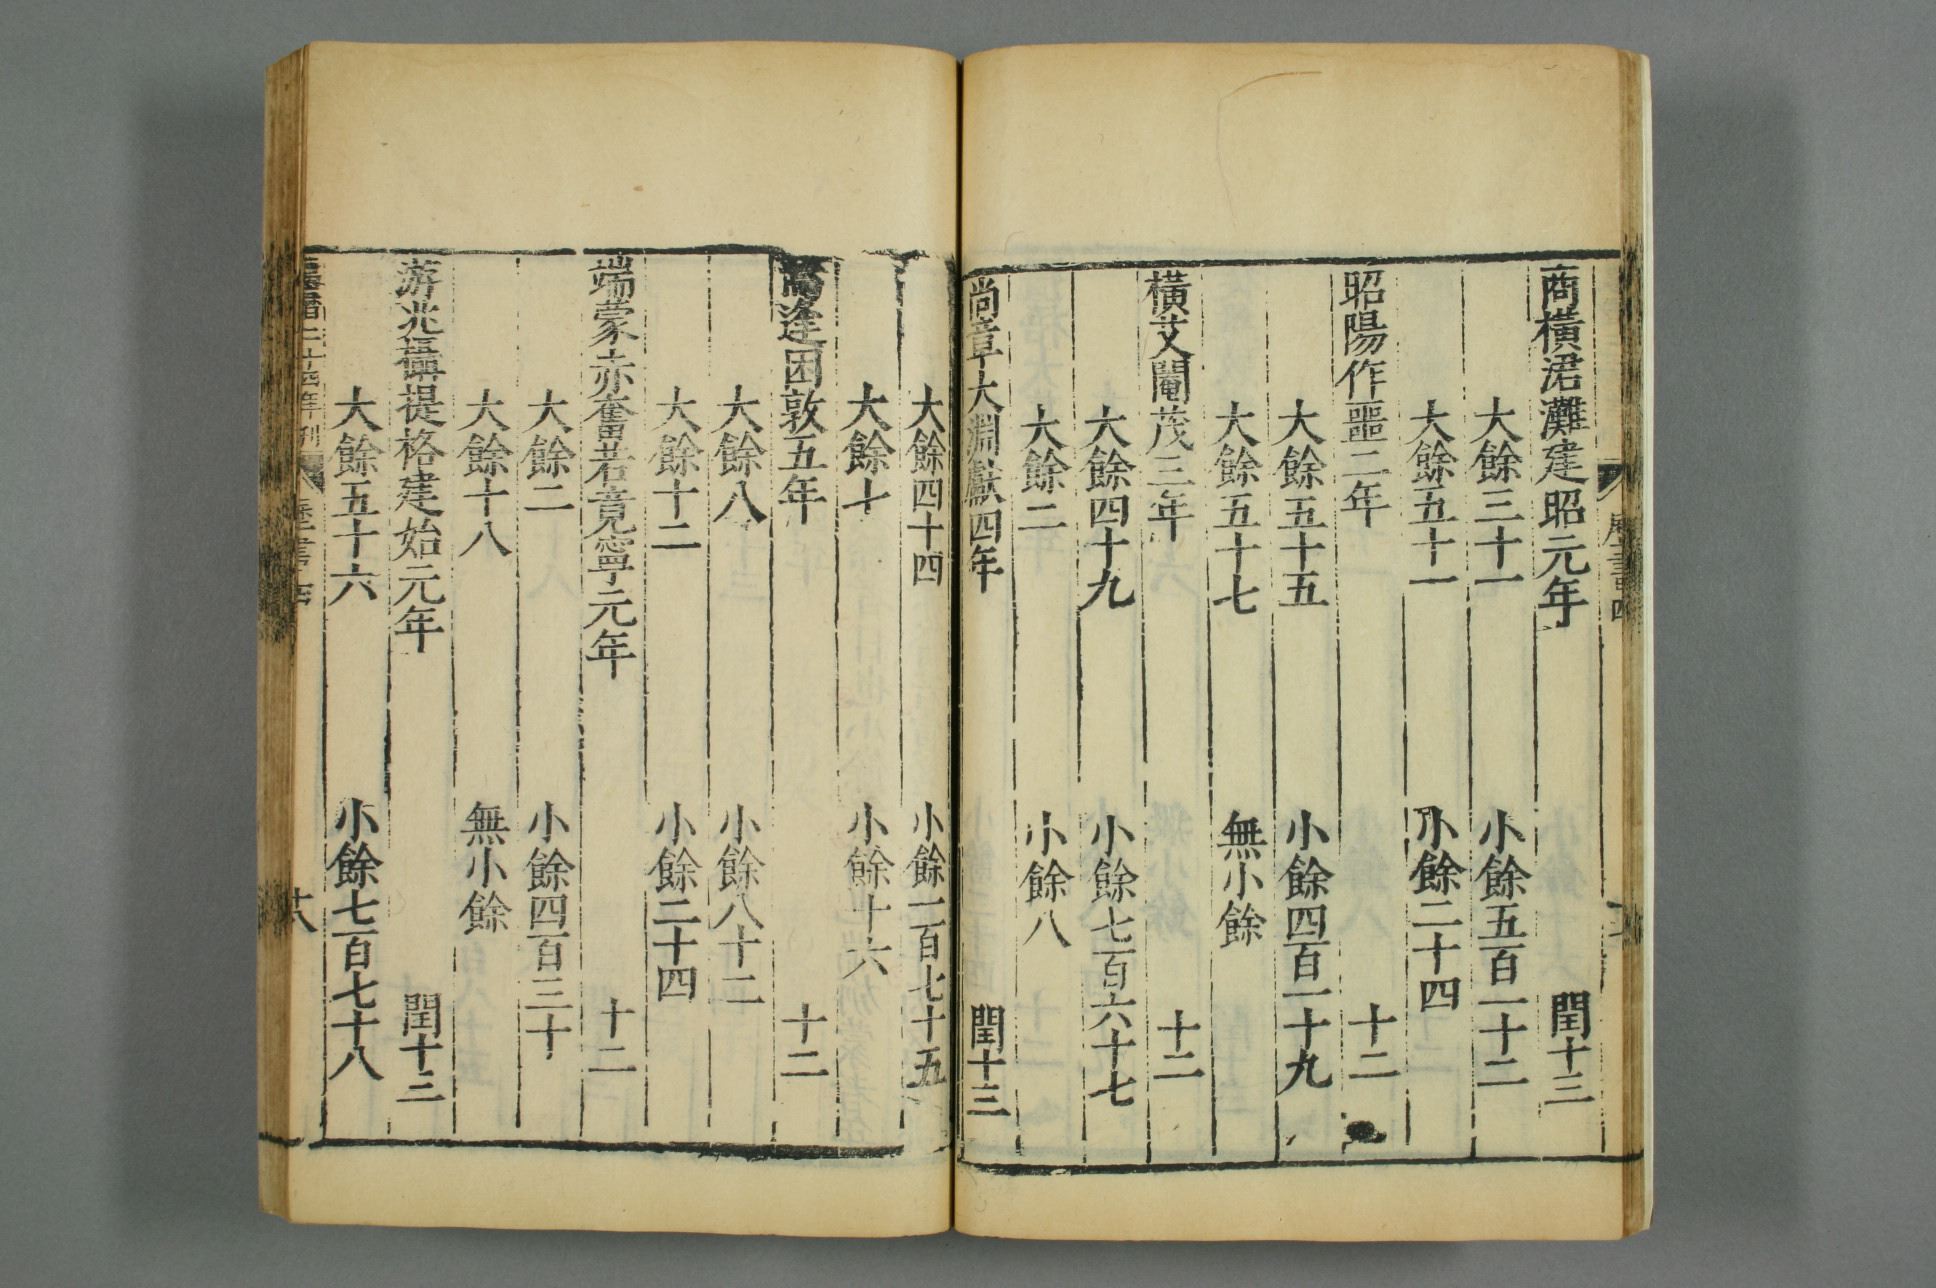 商橫涒灘建昭元年 閏十三
大餘三十一 小餘五百一十二
大餘五十一 小餘二十四
昭陽作噩二年 十二
大餘五十五 小餘四百一十九
大餘五十七 無小餘
橫艾閹茂三年 十二
大餘四十九 小餘七百六十七
大餘二 小餘八
尚章大淵獻四年 閏十三
大餘四十四 小餘一百七十五
大餘七 小餘十六
焉逢困敦五年 十二
大餘八 小餘八十二
大餘十二 小餘二十四
端蒙赤奮若竟寧元年 十二
大餘二 小餘四百三十
大餘十八 無小餘
游兆攝提格建始元年 閏十三
大餘五十六 小餘七百七十八